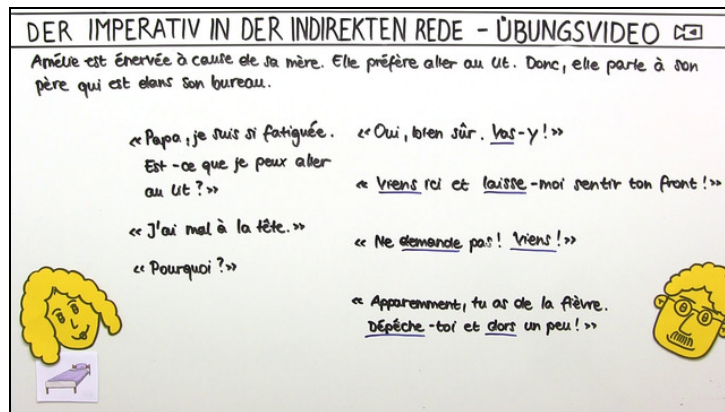 DER IMPERATIV IN DER INDIREKTEN REDE - ÜBUNGSVIDEO
Amélie est énervée à cause de sa mère. Elle préfère aller au lit. Donc, elle parle à son
père qui est dans son bureau.
«Papa, je suis si fatiguée.
Est-ce que je peux aller
au lit?»
«J'ai mal à la tête.»
«Pourquoi?»
«Oui, bien sûr. Vas-y!»
« Viens ici et laisse-moi sentir ton front!»
« Ne demande pas! Viens!»
« Apparemment, tu as de la fièvre.
Dépêche-toi et dors un peu!»